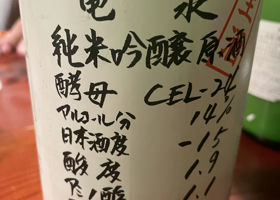 亀泉
純米吟醸原酒
酵母 CEL-24
アルコール分 14%
日本酒度 -15
酸度 1.9
アミノ酸 1.1